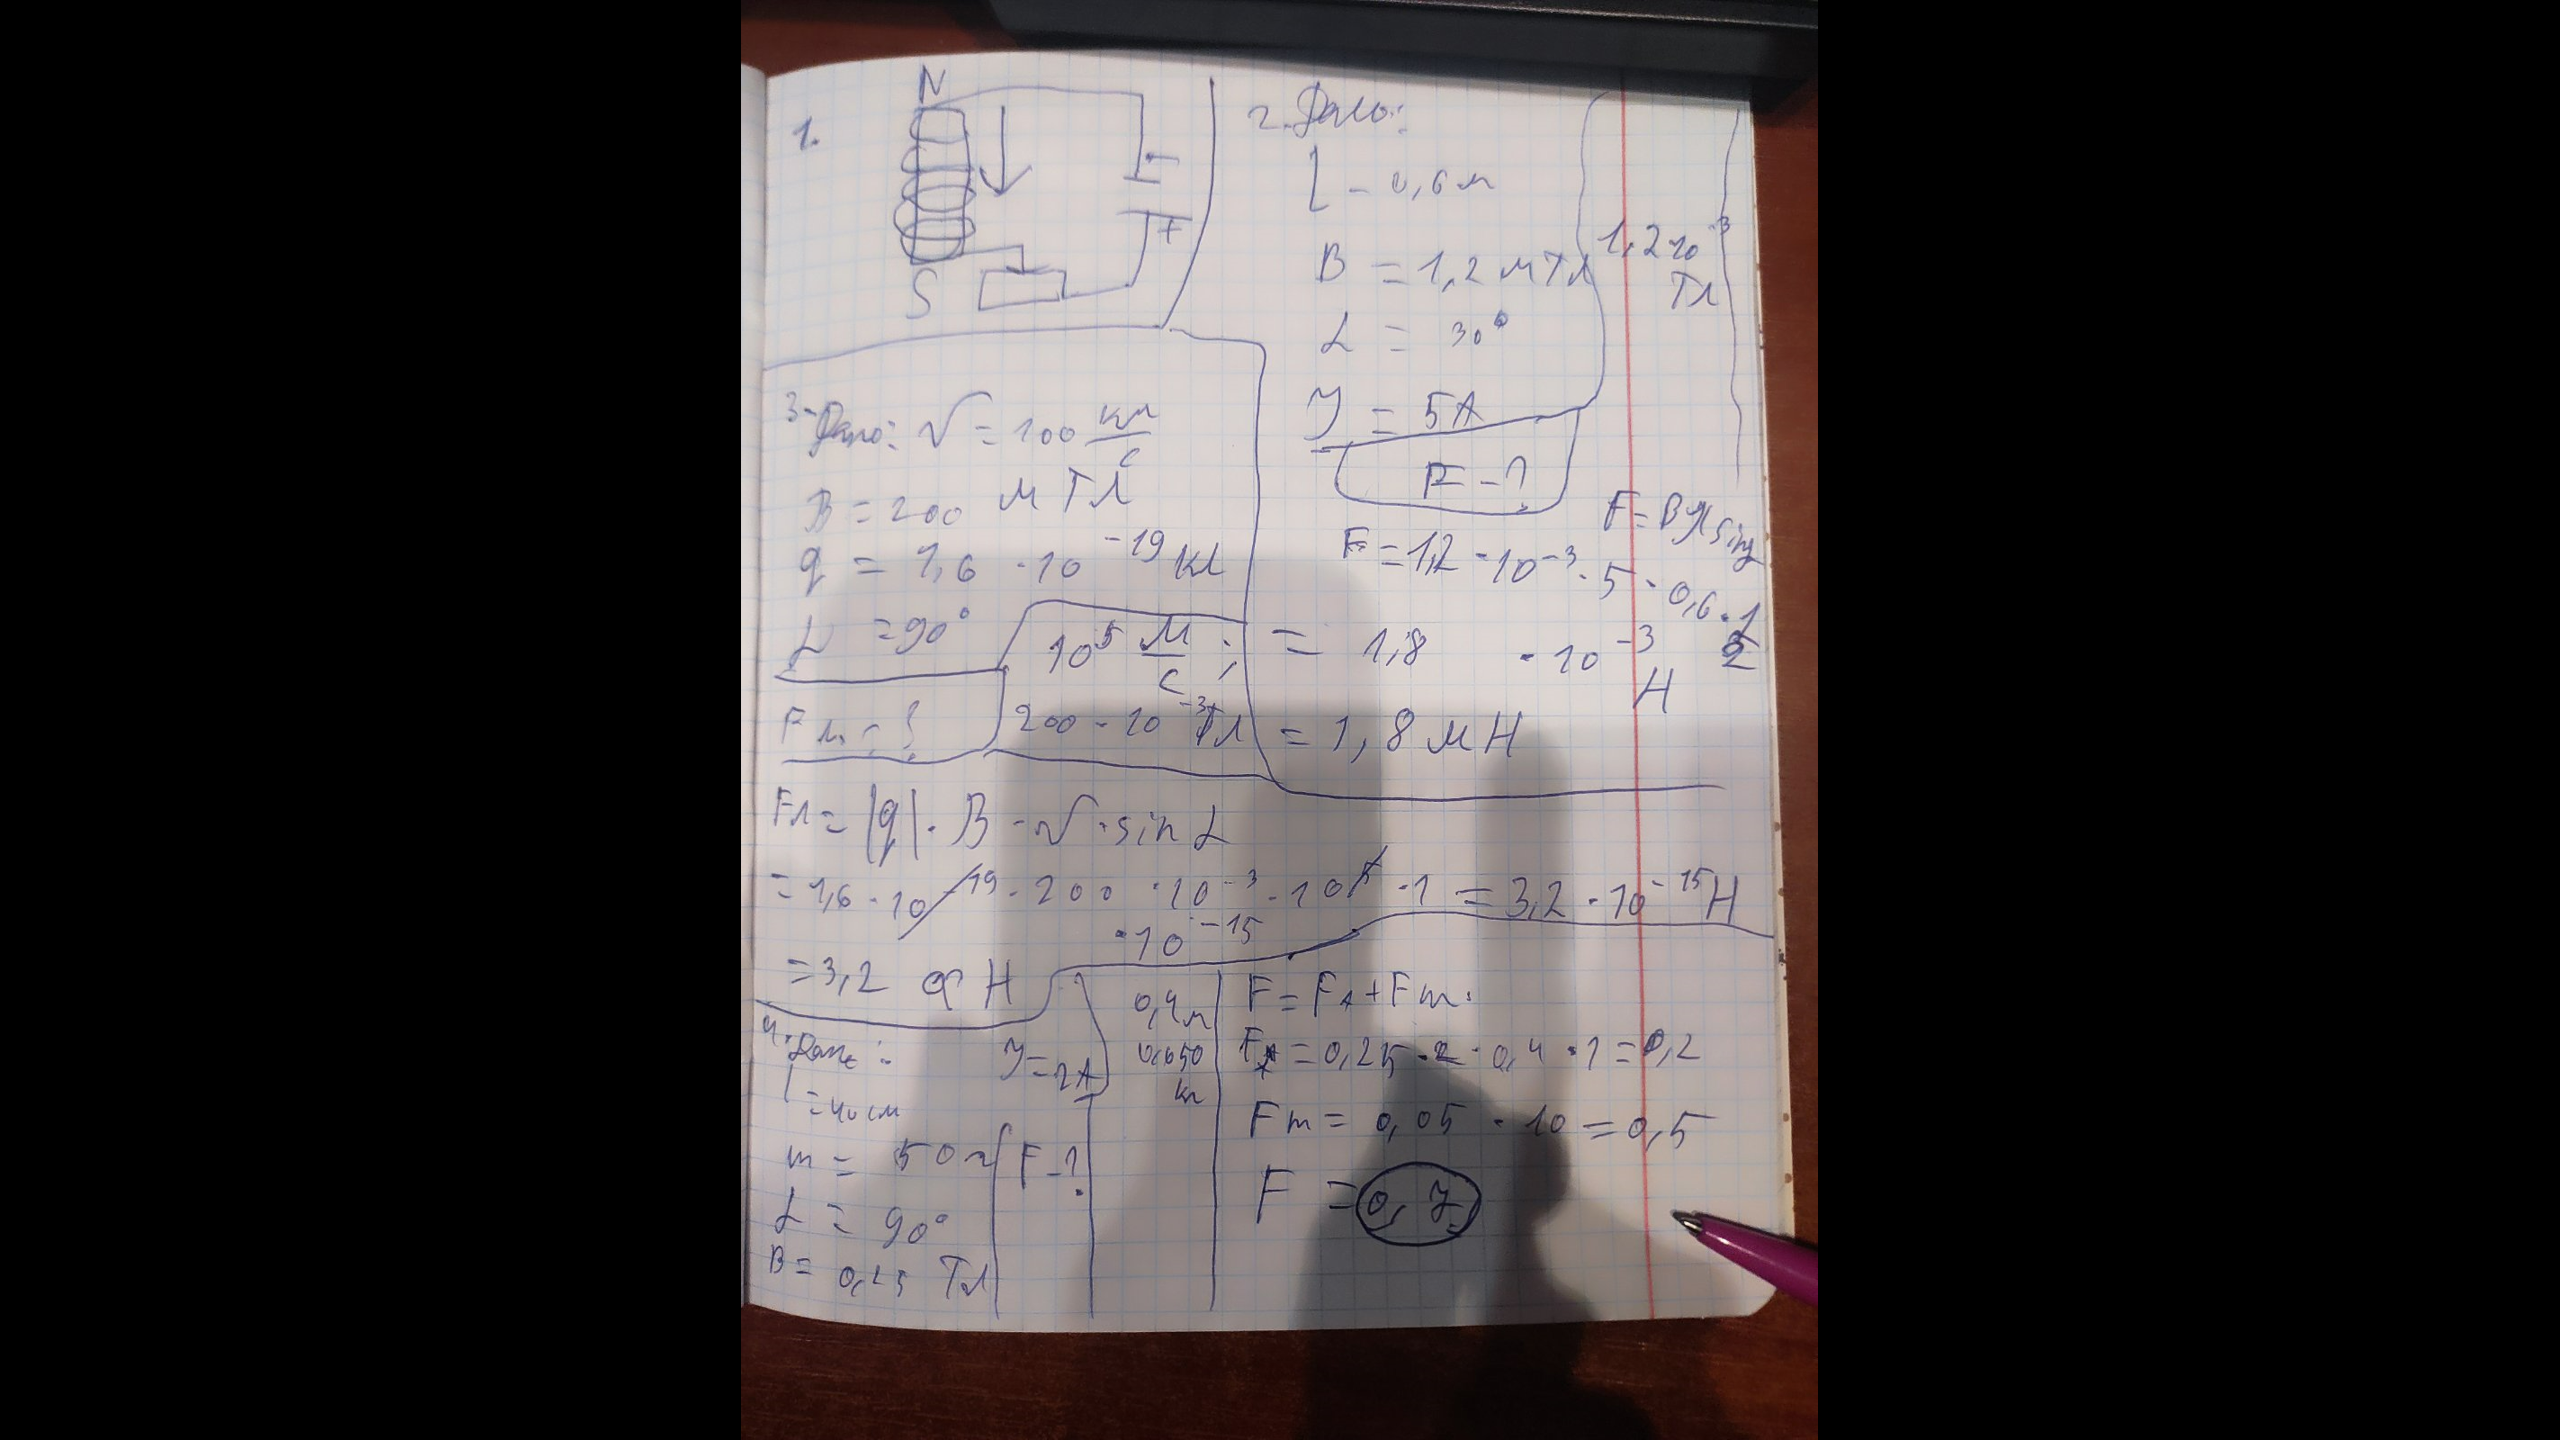 1.
N
-
+
S
2. Дано:
l - 0,6 м
B = 1,2 мТл
1,2·10⁻³
Тл
α = 30°
I = 5А
F - ?
F = BIl sinα
F = 1,2 · 10⁻³ · 5 · 0,6 · 1/2
= 1,8 · 10⁻³
Н
= 1,8 мН
3. Дано: v = 100 км/с
B = 200 мТл
q = 1,6 · 10⁻¹⁹ Кл
α = 90°
10⁵ м/с ;
200 · 10⁻³ Тл
Fл - ?
Fл = |q| · B · v · sin α
= 1,6 · 10⁻¹⁹ · 200 · 10⁻³ · 10⁵ · 1 = 3,2 · 10⁻¹⁵ Н
· 10⁻¹⁵
= 3,2 Н
4. Дано:
I = 2А
l = 40 см
m = 50 г
F - ?
α = 90°
B = 0,25 Тл
0,4 м
0,050
кг
F = FA + Fт.
FA = 0,25 · 2 · 0,4 · 1 = 0,2
Fт = 0,05 · 10 = 0,5
F = 0,7